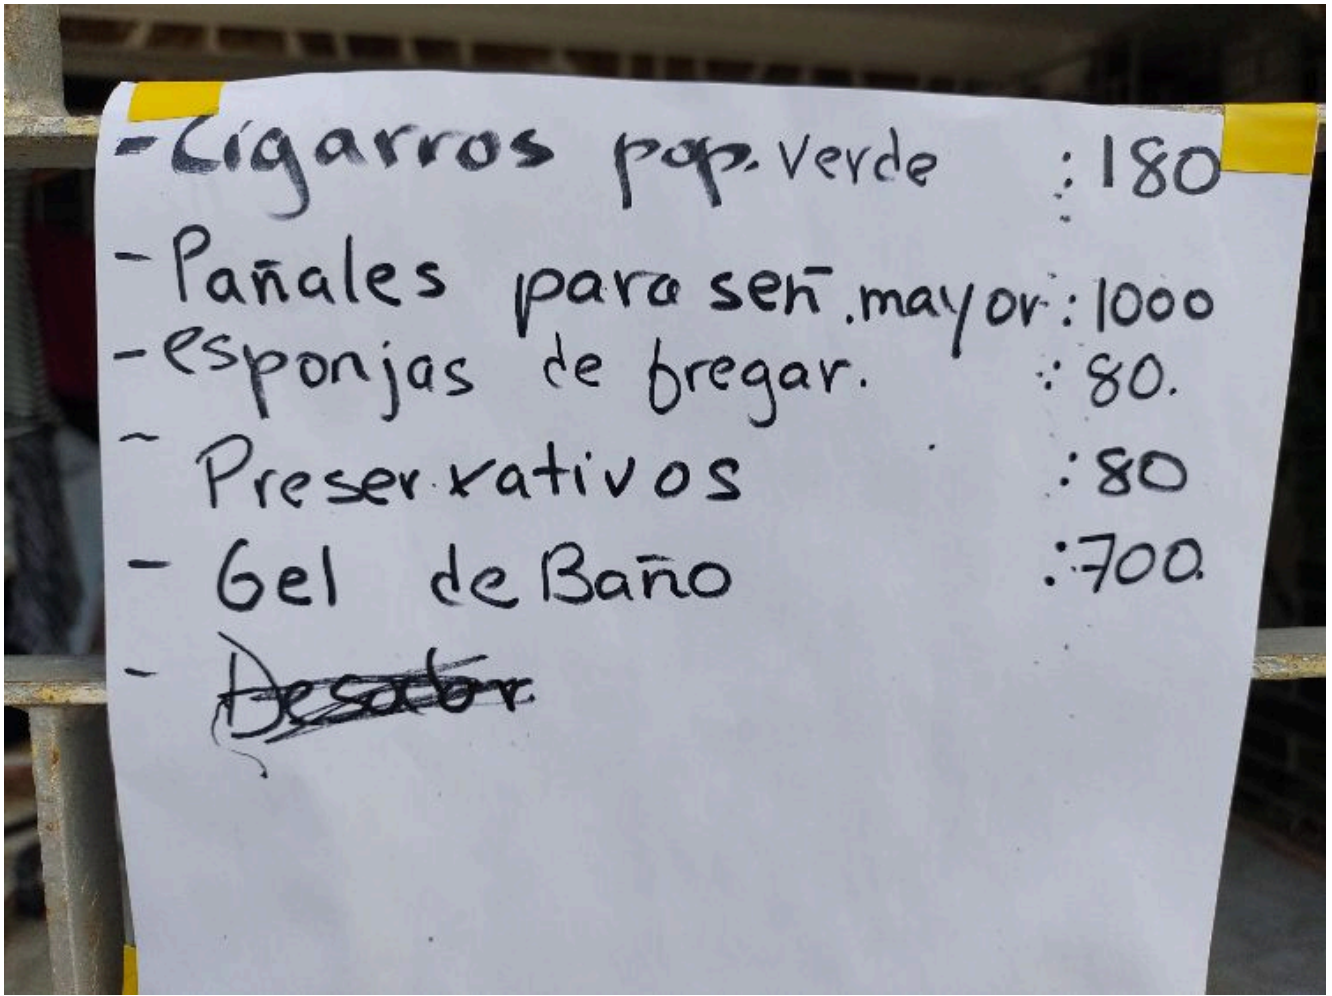 - Cigarros pop. verde : 180
- Pañales para señ. mayor : 1000
- esponjas de fregar. : 80.
- Preservativos : 80
- Gel de Baño : 700.
-